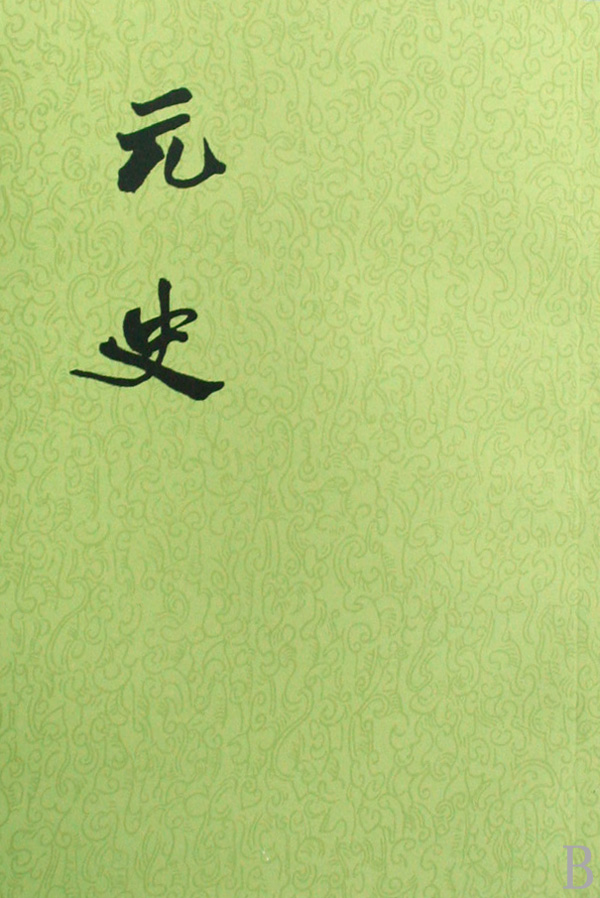 元
史
B